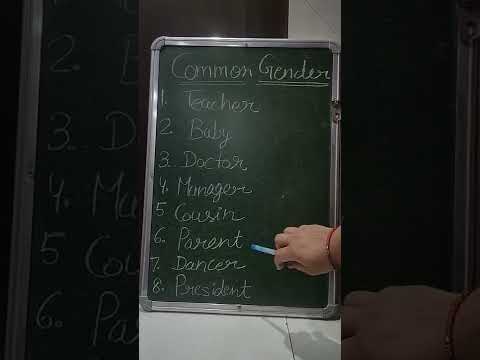 Common Gender
1. Teacher
2. Baby
3. Doctor
4. Manager
5 Cousin
6. Parent
7. Dancer
8. President